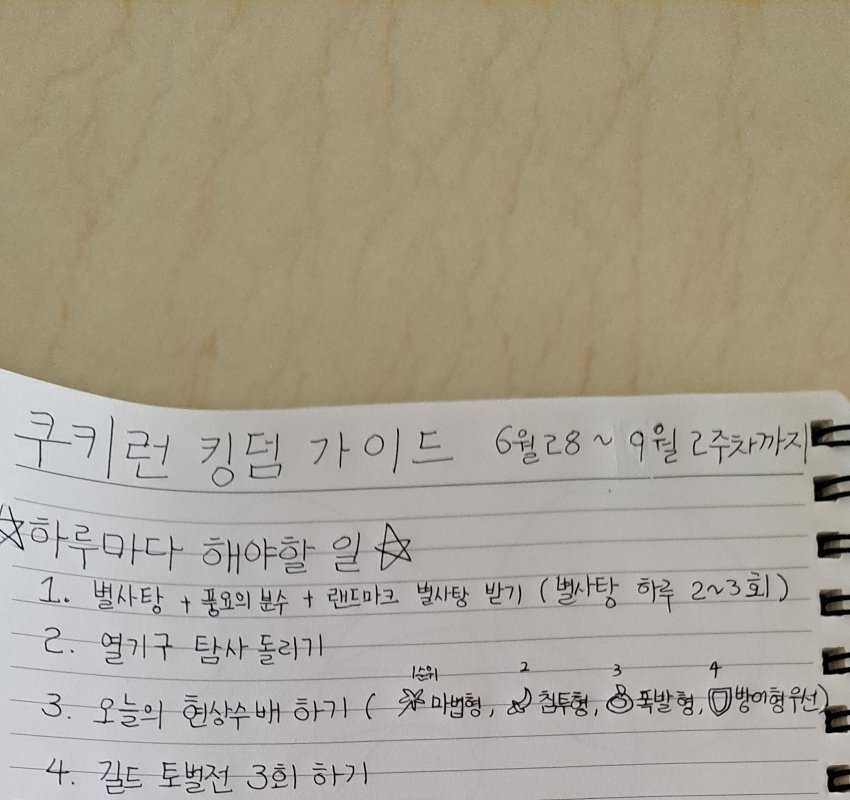 쿠키런 킹덤 가이드 6월28~9월 2주차까지
☆하루마다 해야할 일☆
1. 별사탕 + 풍요의 분수 + 랜드마크 별사탕 받기 (별사탕 하루 2~3회)
2. 열기구 탐사 돌리기
1순위 2 3 4
3. 오늘의 현상수배 하기 ( 마법형, 침투형, 폭발형, 방어형우선)
4. 길드 토벌전 3회 하기